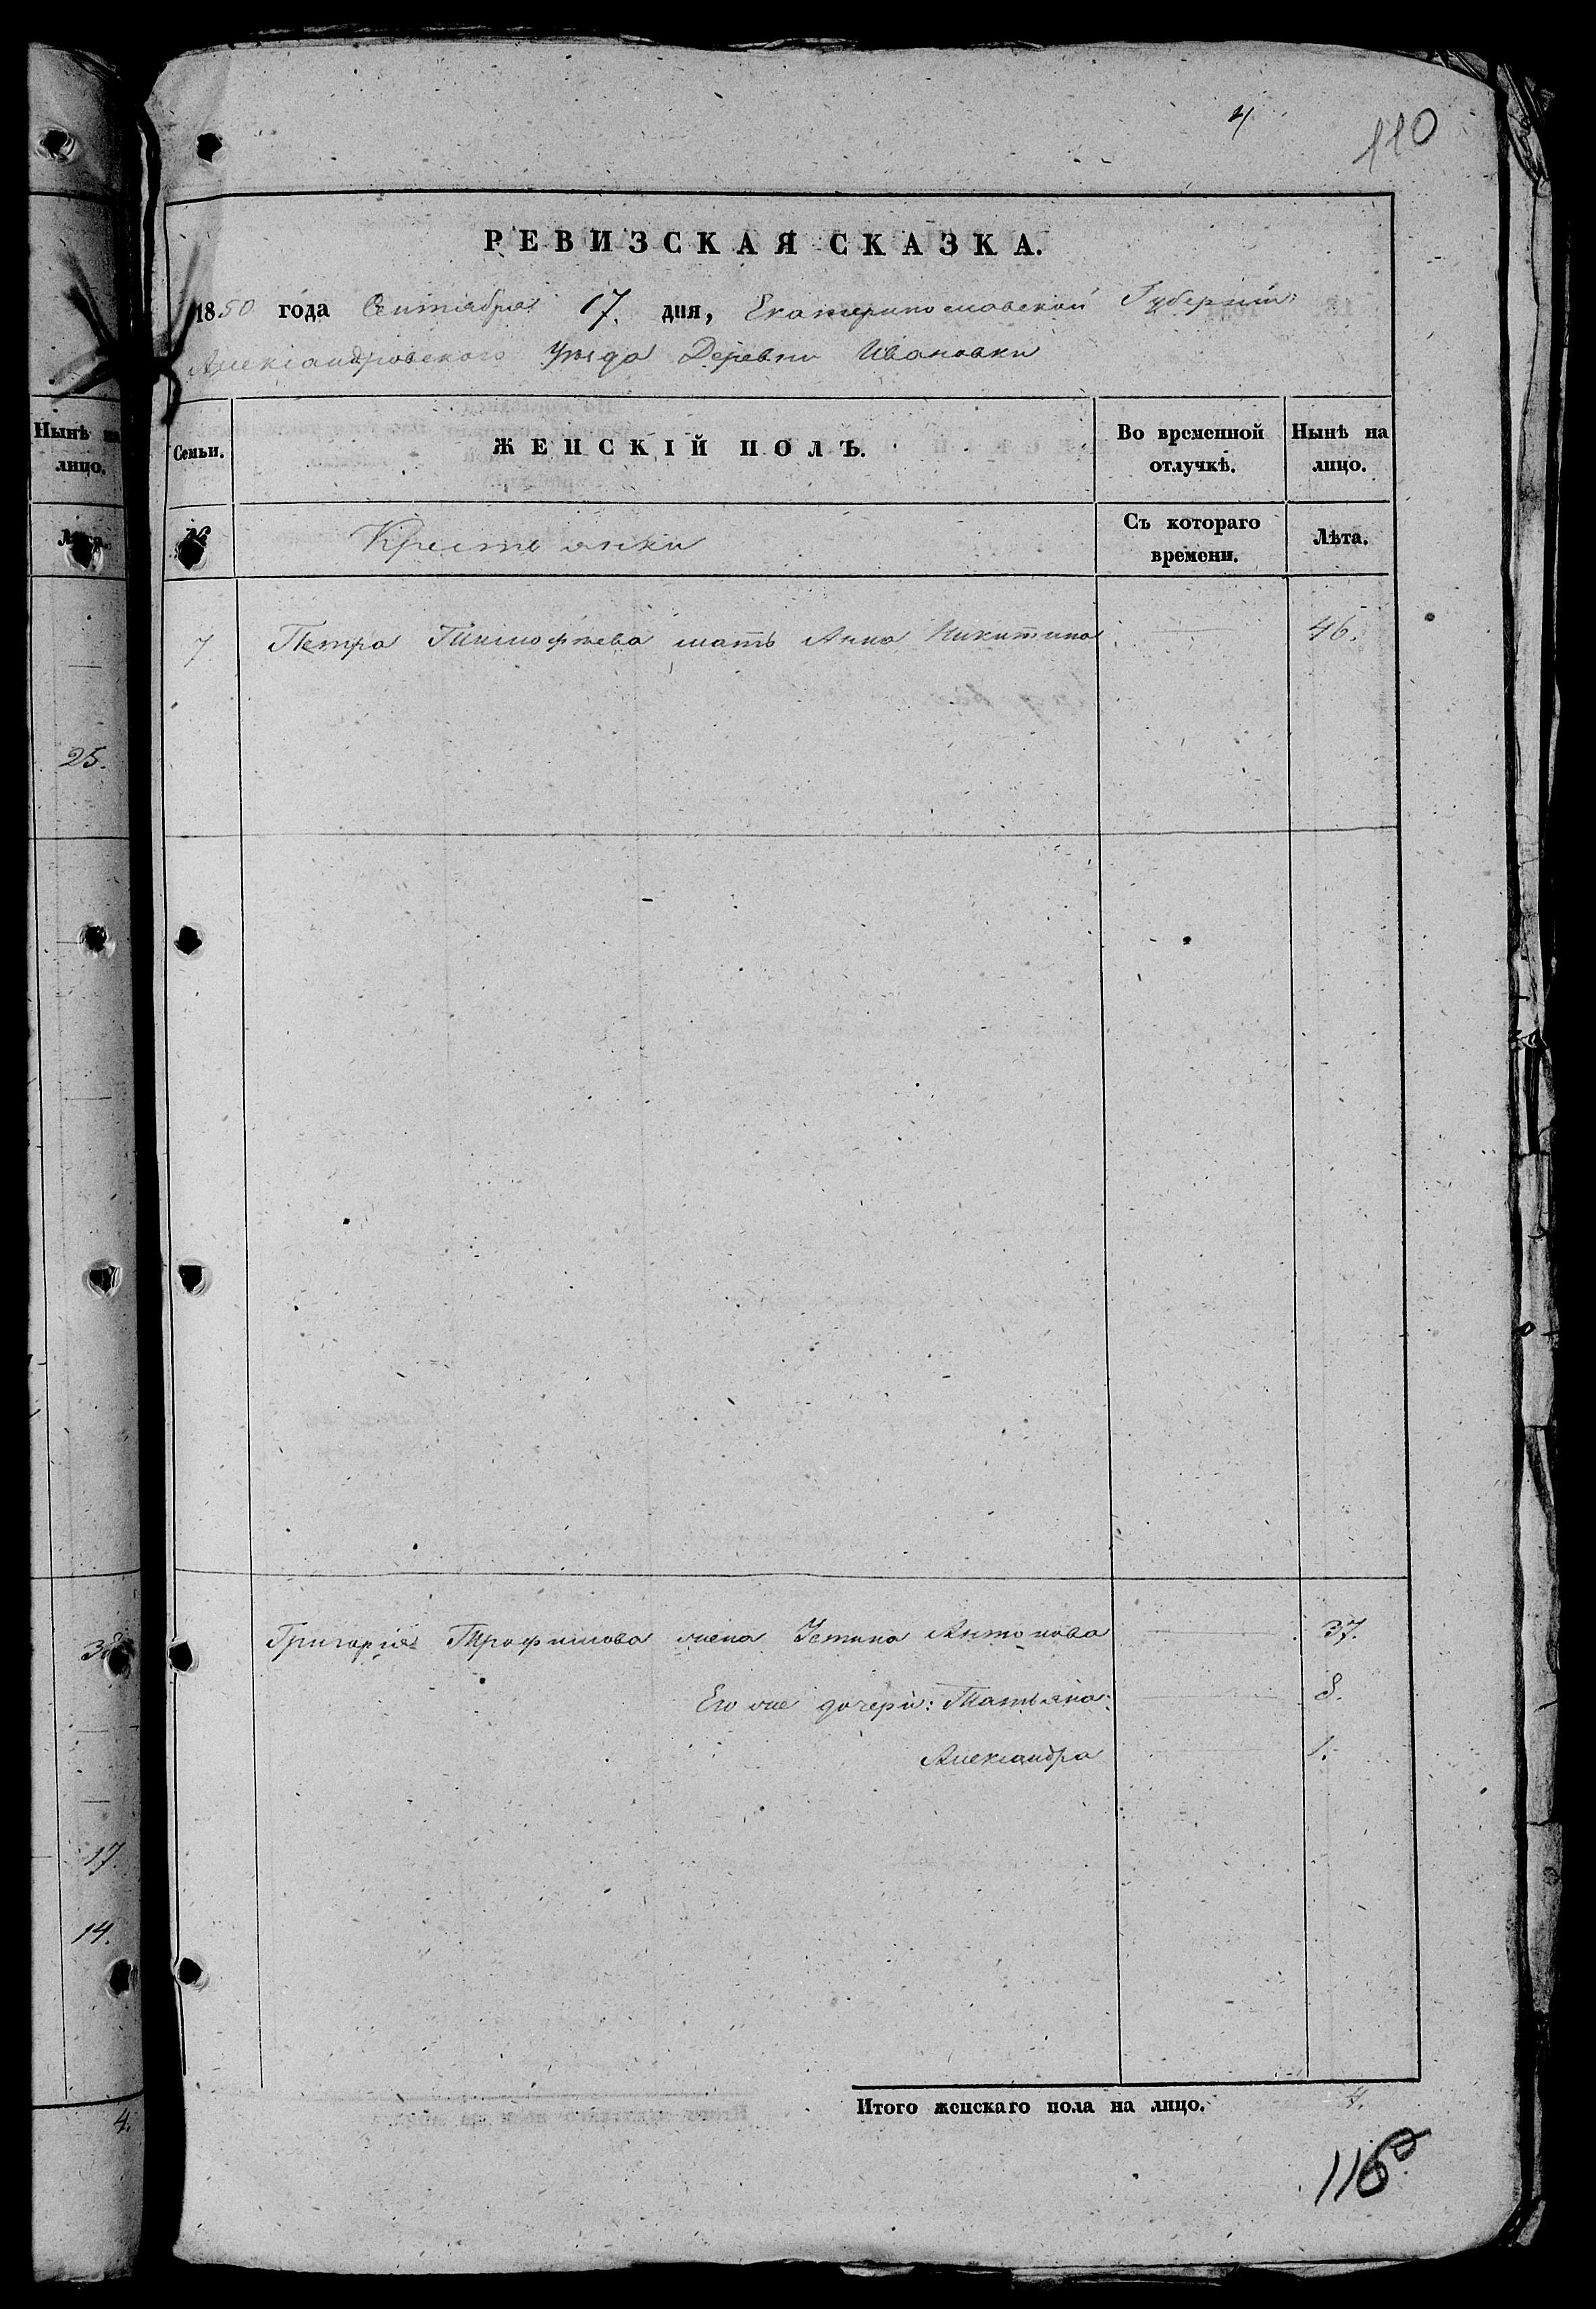 4
110
РЕВИЗСКАЯ СКАЗКА.
1850 года Сентября 17. дня, Екатеринославской Губернии
Александровского Уѣзда Деревни Ивановки
Нынѣ на
лицо.
Семьи.
ЖЕНСКІЙ ПОЛЪ.
Во временной
отлучкѣ.
Нынѣ на
лицо.
№
Крестьянки
Съ котораго
времени.
Лѣта.
7 Петра Тимофѣева мать Анна Никитина 46.
25.
Григорія Трофимова жена Устина Антонова 37.
38
Его же дочери: Татьяна 8.
Александра 1.
17.
14.
4.
Итого женскаго пола на лицо. 4.
116